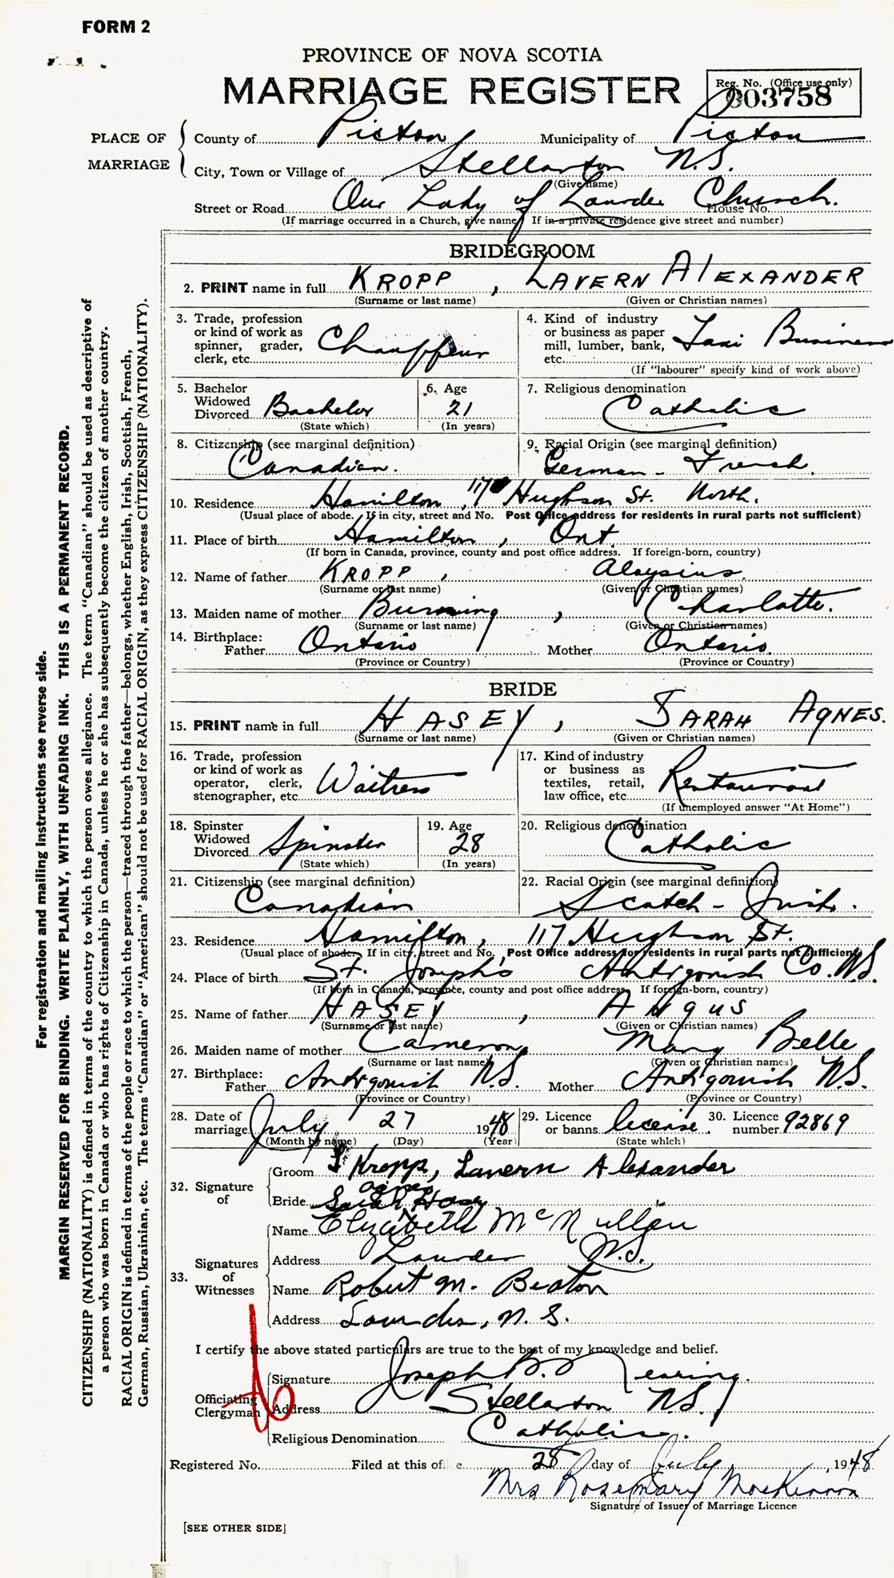 FORM 2
PROVINCE OF NOVA SCOTIA
MARRIAGE REGISTER
Reg. No. (Office use only)
003758
PLACE OF MARRIAGE
County of Pictou Municipality of Pictou
City, Town or Village of Stellarton N.S.
(Give name)
Street or Road Our Lady of Lourdes Church. House No.
(If marriage occurred in a Church, give name. If in a private residence give street and number)
BRIDEGROOM
2. PRINT name in full KROPP, LAVERN ALEXANDER
(Surname or last name) (Given or Christian names)
3. Trade, profession or kind of work as spinner, grader, clerk, etc. Chauffeur
4. Kind of industry or business as paper mill, lumber, bank, etc. Taxi Business
(If "labourer" specify kind of work above)
5. Bachelor Widowed Divorced Bachelor
(State which)
6. Age 21
(In years)
7. Religious denomination
Catholic
8. Citizenship (see marginal definition)
Canadian.
9. Racial Origin (see marginal definition)
German - French.
10. Residence Hamilton, 117 Hughson St. North.
(Usual place of abode. If in city, street and No. Post Office address for residents in rural parts not sufficient)
11. Place of birth Hamilton, Ont.
(If born in Canada, province, county and post office address. If foreign-born, country)
12. Name of father KROPP, Aloysius.
(Surname or last name) (Given or Christian names)
13. Maiden name of mother , Charlotte.
(Surname or last name) (Given or Christian names)
14. Birthplace:
Father Ontario Mother Ontario.
(Province or Country) (Province or Country)
BRIDE
15. PRINT name in full HASEY, SARAH AGNES.
(Surname or last name) (Given or Christian names)
16. Trade, profession or kind of work as operator, clerk, stenographer, etc. Waitress
17. Kind of industry or business as textiles, retail, law office, etc. Restaurant
(If unemployed answer "At Home")
18. Spinster Widowed Divorced Spinster
(State which)
19. Age 28
(In years)
20. Religious denomination
Catholic
21. Citizenship (see marginal definition)
Canadian
22. Racial Origin (see marginal definition)
Scotch - Irish.
23. Residence Hamilton, 117 Hughson St.
(Usual place of abode. If in city, street and No. Post Office address for residents in rural parts not sufficient)
24. Place of birth St. Joseph's Antigonish Co. N.S.
(If born in Canada, province, county and post office address. If foreign-born, country)
25. Name of father HASEY, ANGUS
(Surname or last name) (Given or Christian names)
26. Maiden name of mother Cameron Mary Belle
(Surname or last name) (Given or Christian names)
27. Birthplace:
Father Antigonish N.S. Mother Antigonish N.S.
(Province or Country) (Province or Country)
28. Date of marriage July 27 1948
(Month by name) (Day) (Year)
29. Licence or banns license.
(State which)
30. Licence number 92869
32. Signature of
Groom Kropp, Lavern Alexander
Bride Sarah Agnes Hasey
33. Signatures of Witnesses
Name Elizabeth McMullen
Address Lourdes N.S.
Name Robert M. Beaton
Address Lourdes, N.S.
I certify the above stated particulars are true to the best of my knowledge and belief.
Officiating Clergyman
Signature Joseph B. Nearing.
Address Stellarton N.S.
Religious Denomination Catholic.
Registered No. Filed at this office 28 day of July, 1948
Mrs Rosemary MacKinnon
Signature of Issuer of Marriage Licence
[SEE OTHER SIDE]
For registration and mailing instructions see reverse side.
MARGIN RESERVED FOR BINDING. WRITE PLAINLY, WITH UNFADING INK. THIS IS A PERMANENT RECORD.
CITIZENSHIP (NATIONALITY) is defined in terms of the country to which the person owes allegiance. The term "Canadian" should be used as descriptive of
a person who was born in Canada or who has rights of Citizenship in Canada, unless he or she has subsequently become the citizen of another country.
RACIAL ORIGIN is defined in terms of the people or race to which the person—traced through the father—belongs, whether English, Irish, Scottish, French,
German, Russian, Ukrainian, etc. The terms "Canadian" or "American" should not be used for RACIAL ORIGIN, as they express CITIZENSHIP (NATIONALITY).